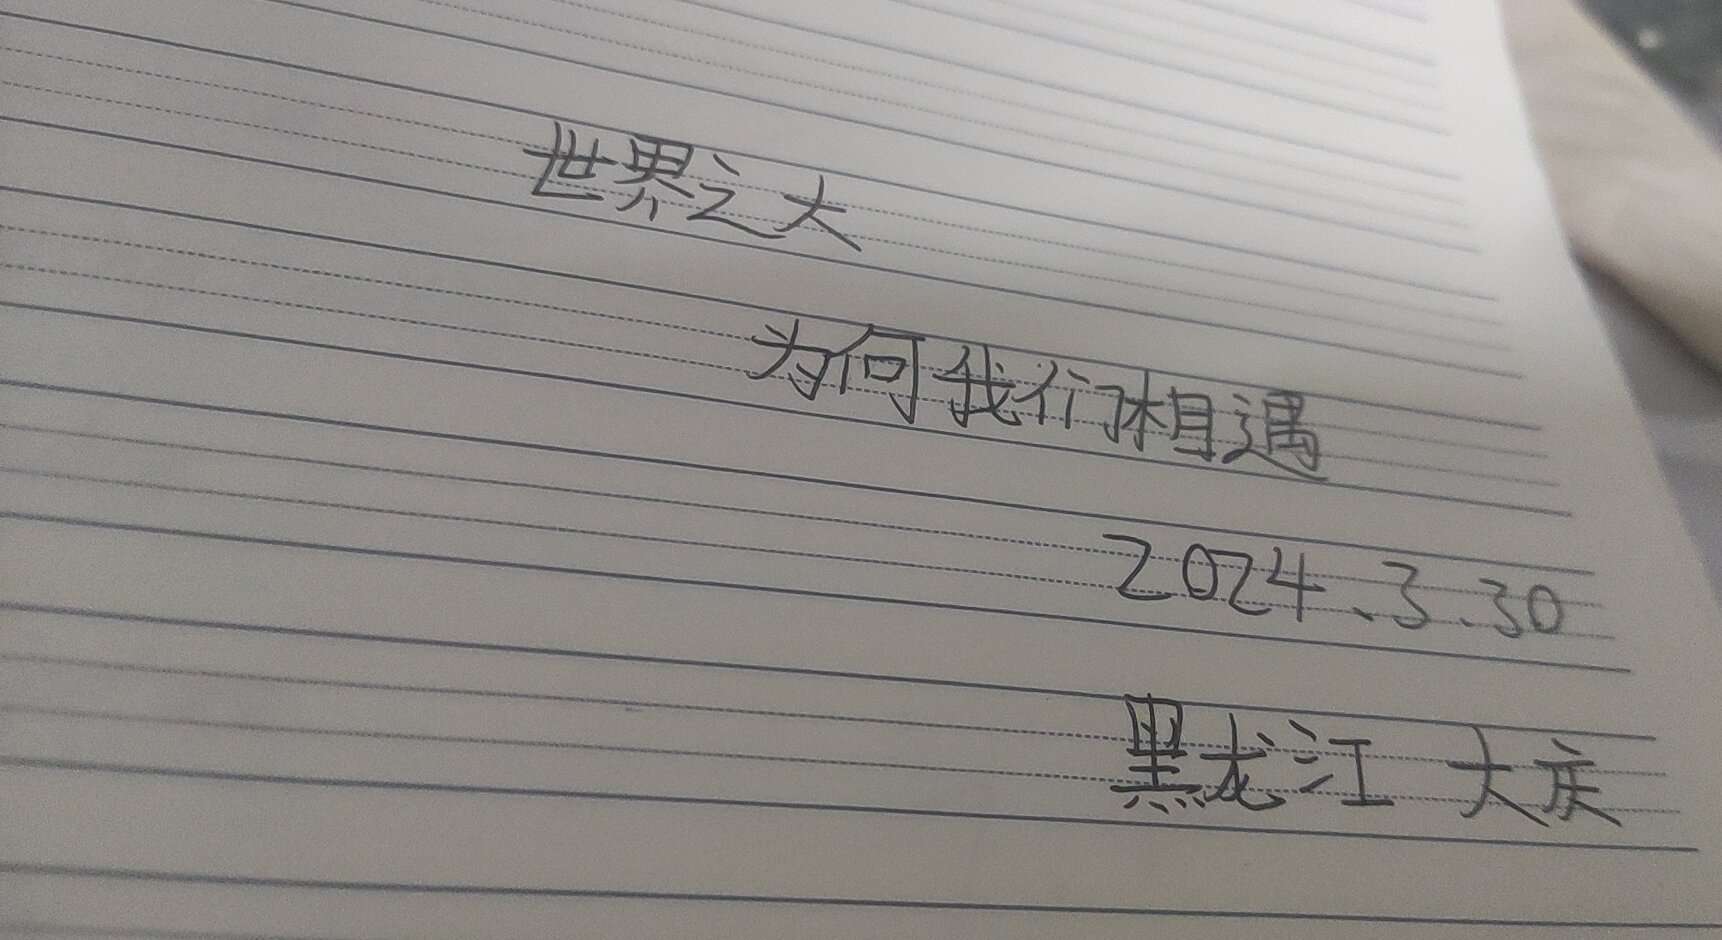 世界之大
为何我们相遇
2024.3.30
黑龙江 大庆